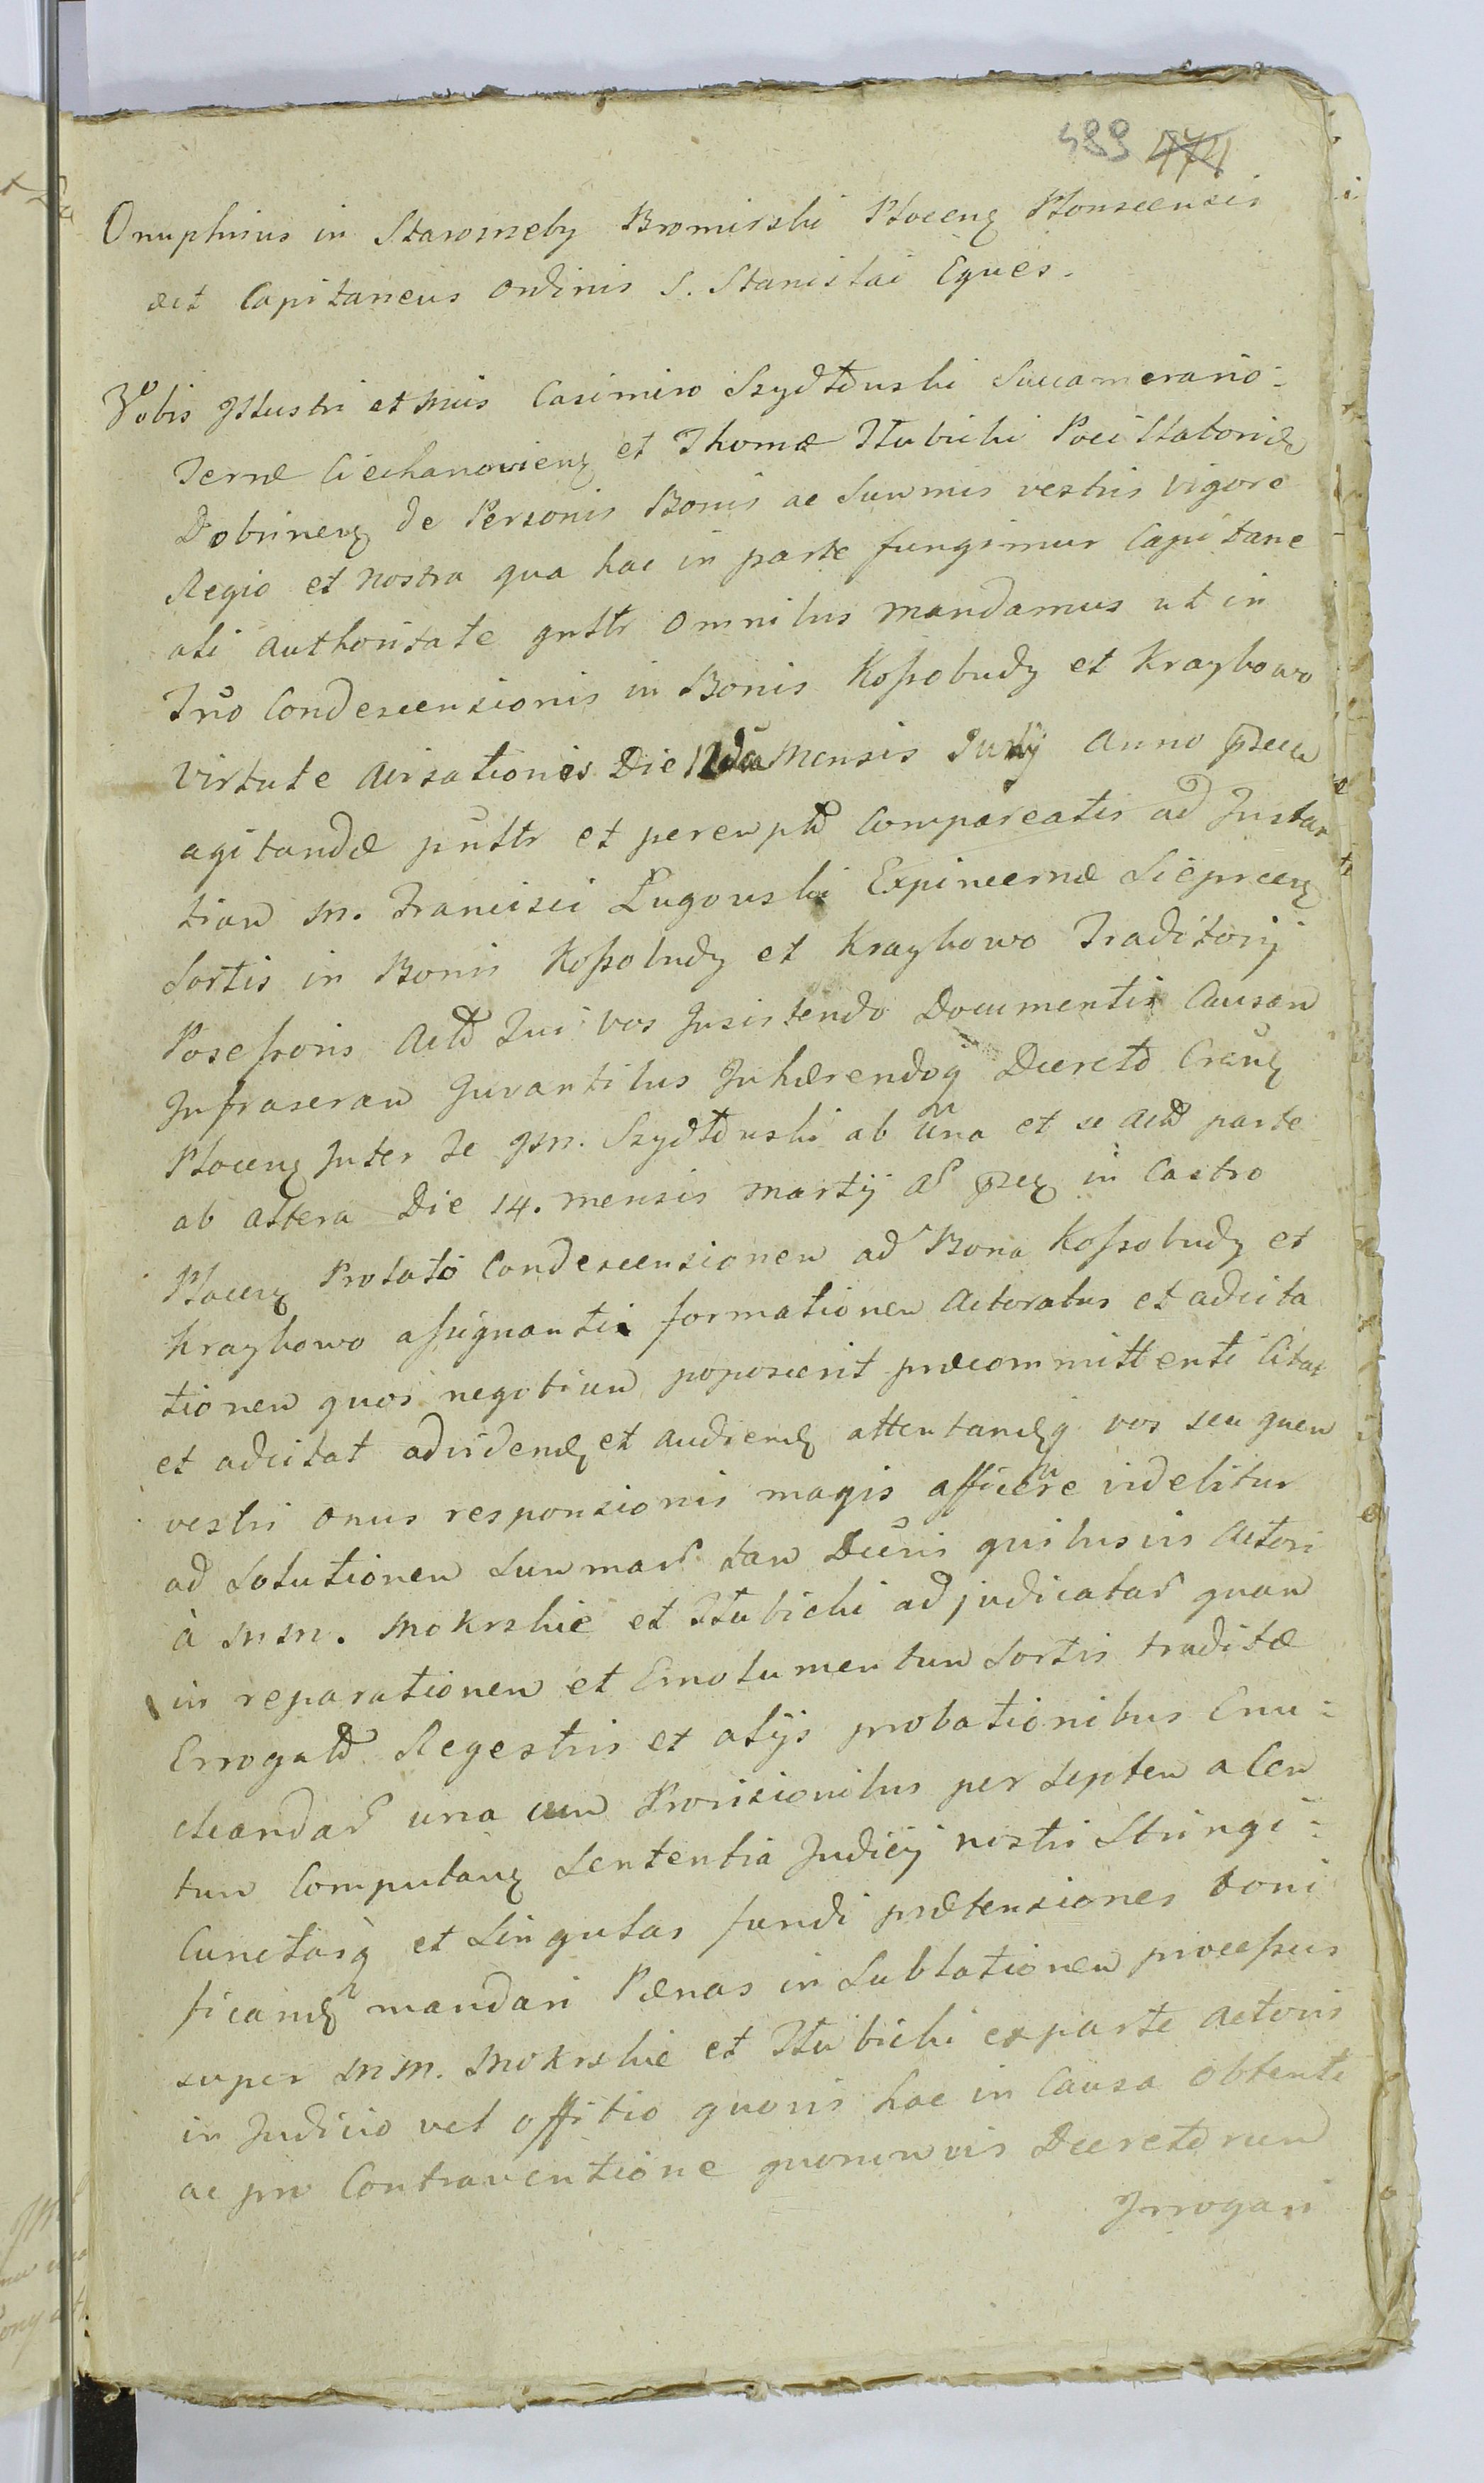 489 474
Onuphrius in Starorzeby Bromirski Płocenʒ Płonscensis
ect Capitaneus Ordinis S. Stanislai Eques.
Vobis Illustri et Mcis Casimiro Szydłowski Succamerario-
Terræ Ciechanovienʒ et Thomæ Kłubicki Pocillatoridʒ
Dobrinenʒ de Personis Bonis ac Summis vestris vigore
Regio et Nostra qua hac in parte fungimur Capitane
ali Authoritate gnttr Omnibus Mandamus ut in
Trõ Condescensionis in Bonis Kossobudy et Kraykowo
virtute Avizationis Die 12da Mensis July Anno
agitandæ pnttr et perempto Compareatis ad Instan
tiam M. Francisci Ługowski Expincernæ Sieprcenʒ
Sortis in Bonis Kossobudy et Kraykowo Traditorij
Possessoris Acto qui vos Insistendo Documentis Causam
Infraseram Juvantibus Inhærendoq Decreto Crali
Płocenʒ Inter Te JM. Szydłowski ab una et se Acto parte
ab altera Die 14. mensis Martij Aõ prʒ in Castro
Płocenʒ Prolato Condescensionem ad Bona Kossobudy et
Kraykowo assignanti formationem Actoratus et adcita
tionem quos negotium poposcerit præcommittenti Citat
et adcitat advidendʒ et audiendʒ attentandʒq vos seu quem
vestri onus responsionis magis afficere videbitur
ad Solutionem Summarũ tam Decris quibusvis Actori
à MM. Mokrskie et Kłubicki adjudicatarũ quam
in reparationem et Emolumentum Sortis traditæ
Errogato Regestris et alijs probationibus Enu-
cleandarũ una cum Provisionibus per Septem a Cen
tum Computanʒ Sententia Judicij nostri Stringi-
Cunctasq et Singulas fundi prætensiones boni
ficandʒ mandari Pænas in Sublationem processus
super MM. Mokrskie et Kłubicki ex parte Actoris
in Judicio vel offitio quovis hac in Causa obtenti
ac pro Contraventione quorumvis Decretorum
Irrogari